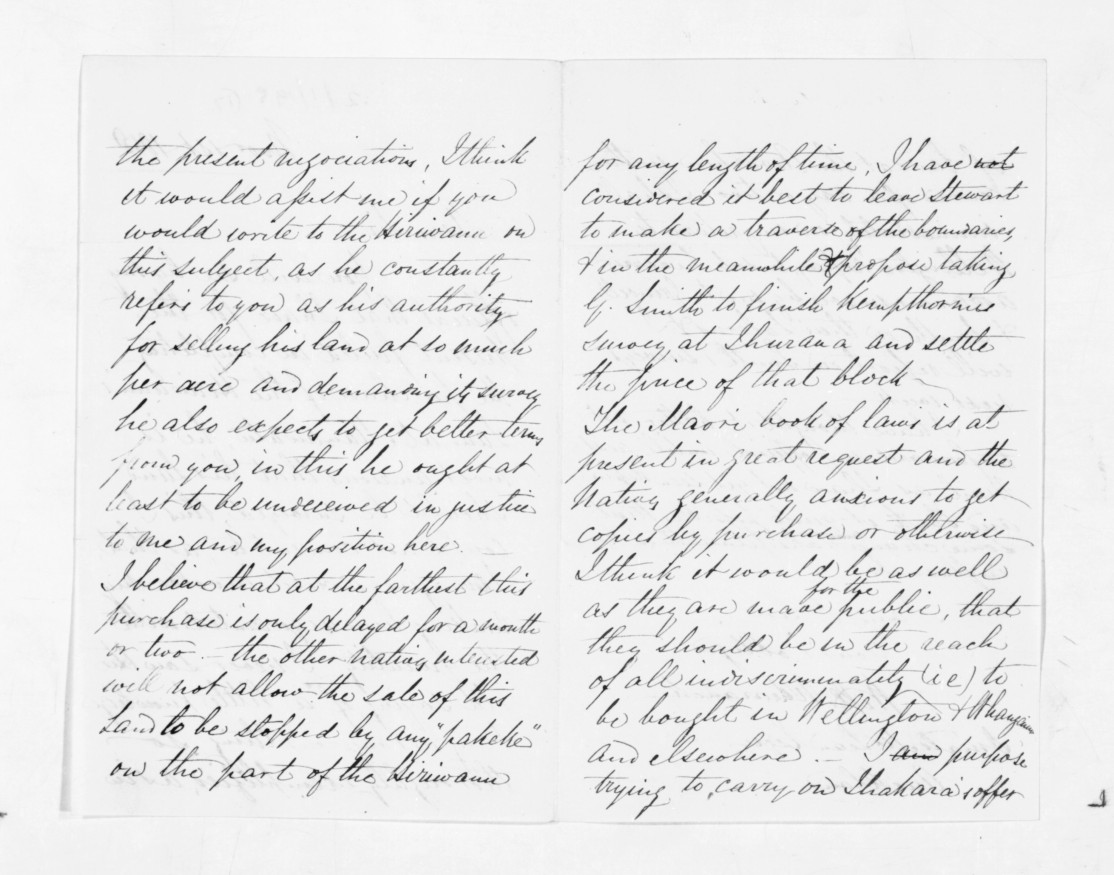 the present negociations, I think
it would assist me if you
would write to the Hiriwanu on
this subject, as he constantly
refers to you as his authority
for selling his land at so much
per acre and demanding its survey
he also expects to get better terms
from you, in this he ought at
least to be undeceived in justice
to me and my position here.
I believe that at the farthest this
purchase is only delayed for a month
or two. — the other natives interested
will not allow the sale of this
Land to be stopped by any "pakeke"
on the part of the Hiriwanu
for any length of time, I have not
considered it best to leave Stewart
to make a traverse of the boundaries,
& in the meanwhile I propose taking
G. Smith to finish Kempthorne's
survey at Ihuraua and settle
the price of that block —
The Maori book of laws is at
present in great request and the
Natives generally anxious to get
copies by purchase or otherwise
I think it would be as well
as they are made for the public, that
they should be in the reach
of all indiscriminately (ie) to
be bought in Wellington & Whanganui
and elsewhere. — I am purpose
trying to carry on Ihakara's offer